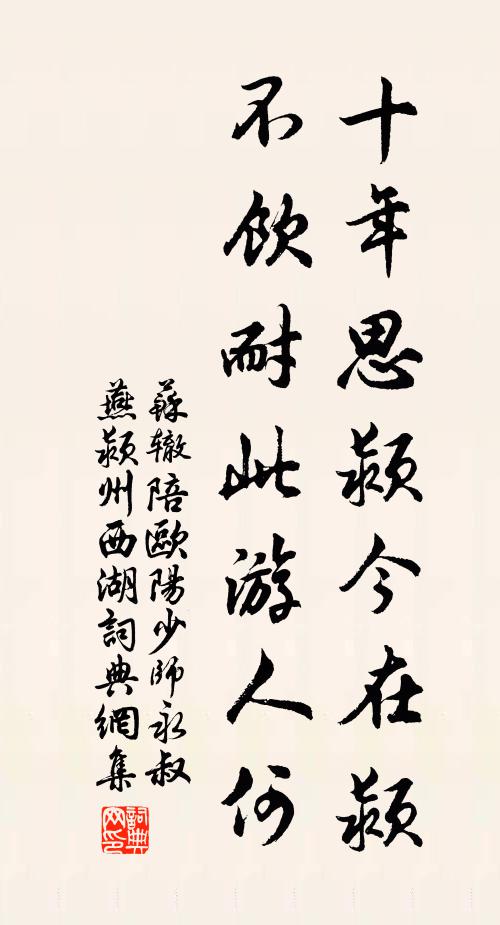 十年思潁今在潁
不飲耐此游人何
蘇轍陪歐陽少師永叔
燕潁州西湖詞典網集
詞典
网印